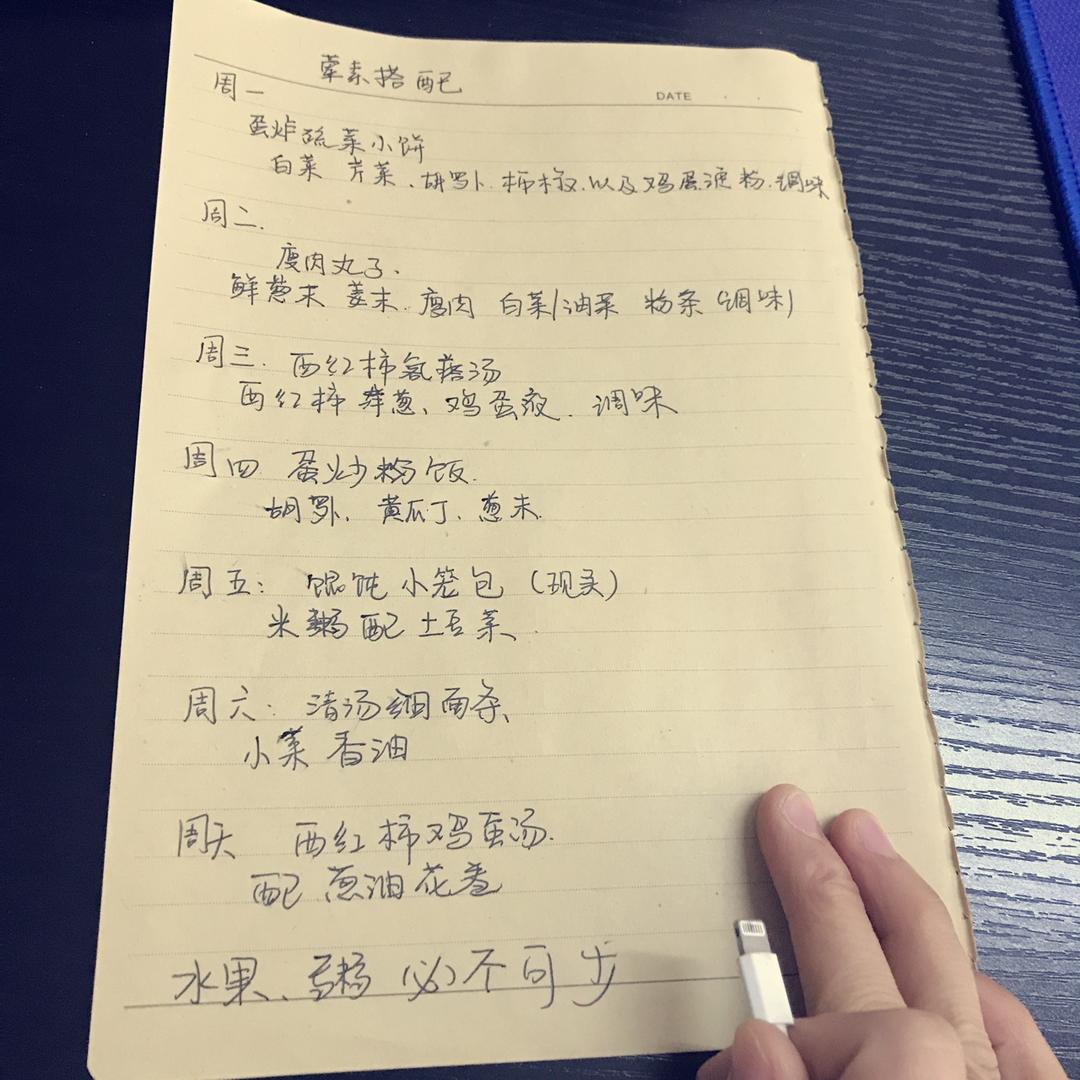 荤素搭配
DATE
周一
蛋炸蔬菜小饼
白菜 芹菜、胡萝卜、柿椒、以及鸡蛋液 粉、调味
周二.
瘦肉丸子.
鲜葱末 姜末. 瘦肉 白菜/油菜 粉条(调味)
周三. 西红柿 汤
西红柿 葱、鸡蛋液. 调味
周四 蛋炒 饭.
胡萝卜、黄瓜丁、葱末.
周五: 馄饨 小笼包 (现买)
米粥 配 土豆 菜
周六: 清汤细面条
小菜 香油
周天 西红柿鸡蛋汤.
配 葱油花卷
水果、粥 必不可少